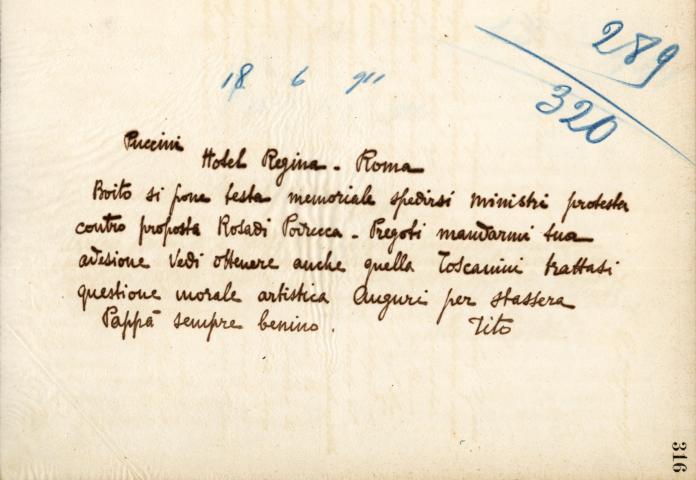 289
320
18 6 911
Puccini
Hotel Regina - Roma
Boito si pone testa memoriale spedirsi ministri protesta
contro proposta Rosadi Podrecca - Pregoti mandarmi tua
adesione Vedi ottenere anche quella Toscanini trattasi
questione morale artistica Auguri per stassera
Pappà sempre benino. Tito
316